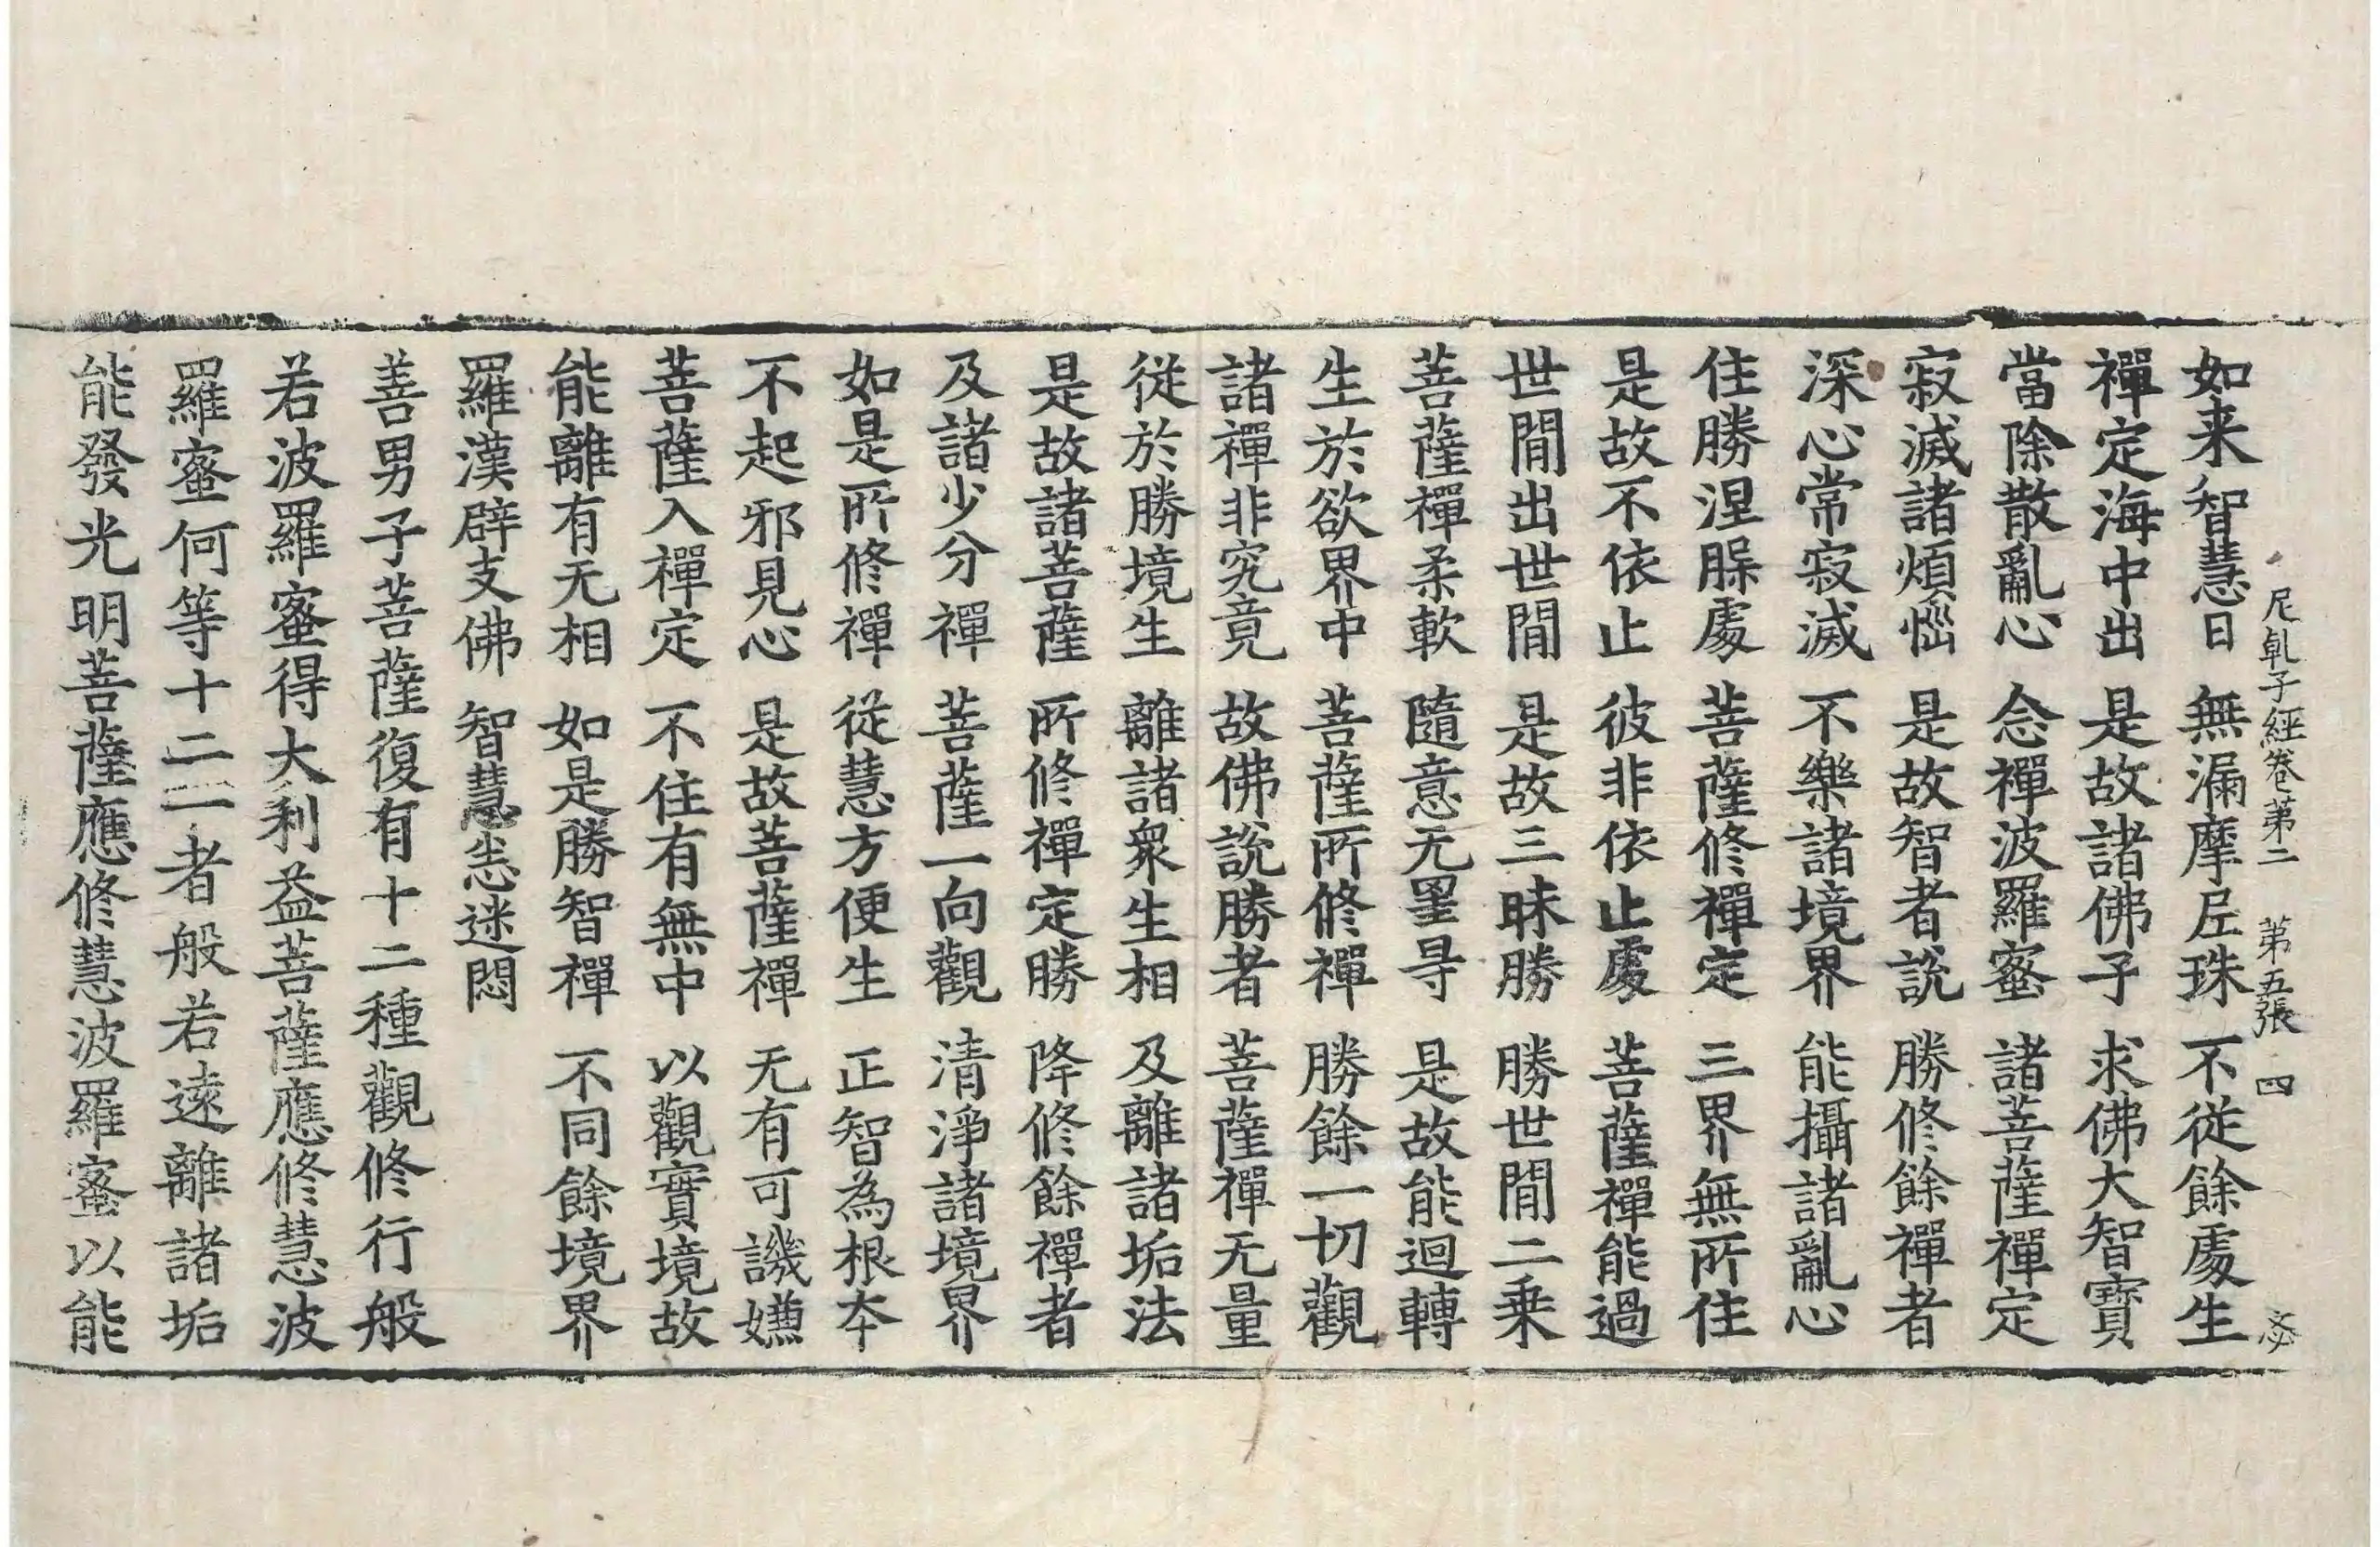 尼乹子經卷第二 第五張 四 密
如来智慧日 無漏摩𡰱珠 不從餘處生
禪定海中出 是故諸佛子 求佛大智寶
當除散亂心 念禪波羅蜜 諸菩薩禪定
寂滅諸煩惱 是故智者說 勝修餘禪者
深心常寂滅 不樂諸境界 能攝諸亂心
住勝涅槃處 菩薩修禪定 三界無所住
是故不依止 彼非依止處 菩薩禪能過
世間出世間 是故三昧勝 勝世間二乗
菩薩禪柔軟 隨意无罣㝵 是故能迴轉
生於欲界中 菩薩所修禪 勝餘一切觀
諸禪非究竟 故佛說勝者 菩薩禪无量
從於勝境生 離諸衆生相 及離諸垢法
是故諸菩薩 所修禪定勝 降修餘禪者
及諸少分禪 菩薩一向觀 清淨諸境界
如是所修禪 從慧方便生 正智為根本
不起邪見心 是故菩薩禪 无有可譏嫌
菩薩入禪定 不住有無中 以觀實境故
能離有无相 如是勝智禪 不同餘境界
羅漢辟支佛 智慧恙迷悶
善男子菩薩復有十二種觀修行般
若波羅蜜得大利益菩薩應修慧波
羅蜜何等十二一者般若遠離諸垢
能發光明菩薩應修慧波羅蜜以能